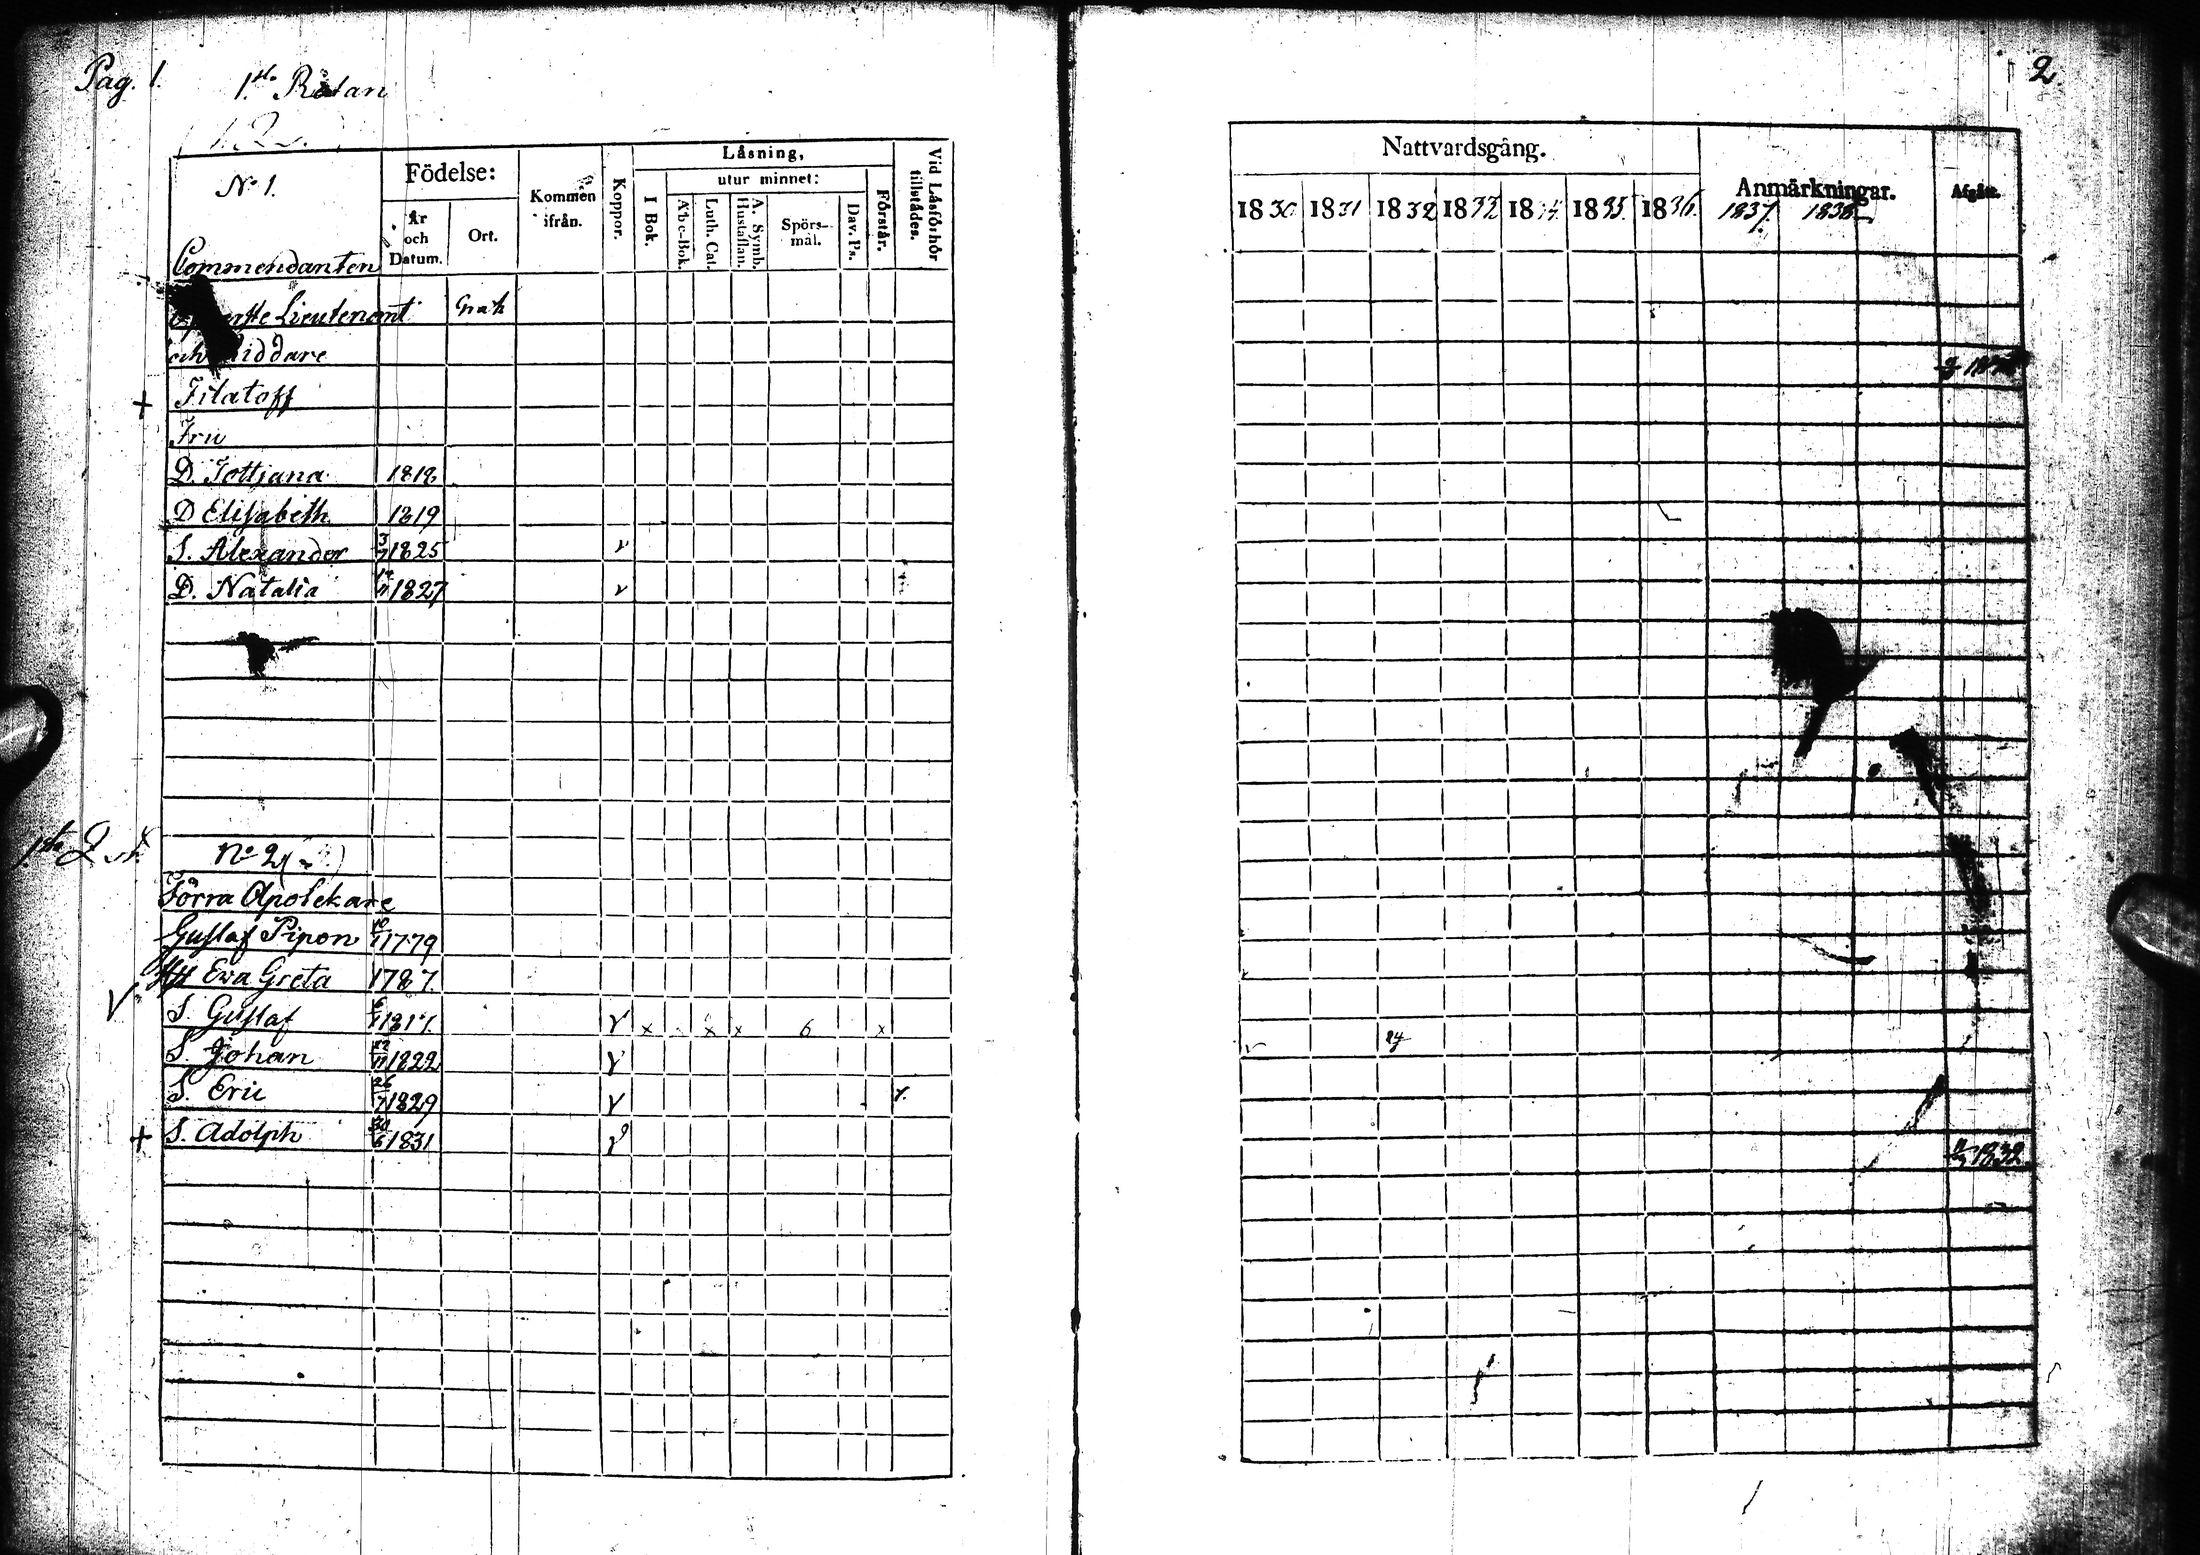 Pag. 1.
1sta Rotan
N:o 1.
Födelse:
År
och
Datum.
Ort.
Kommen
ifrån.
Koppor.
Läsning,
I Bok.
utur minnet:
A-b-c-Bok.
Luth. Cat.
A. Symb.
Hustaflan.
Spörs-
mål.
Dav. Ps.
Förstår.
Vid Läsförhör
tillstädes.
Commendanten
Lieutenant
och Riddare
+ Filatoff
Fru
D. Tottjana 1818
D Elisabeth 1819
S. Alexander 3/7 1825 v
D. Natalia 1827 v
1sta
No 2
Förra Apotekare
Gustaf Pipon 1779
Ewa Greta 1787
S. Gustaf 1817 v x x x 6 x
S. Johan 22/11 1822 v
S. Eric 26/7 1829 v
+ S. Adolph 30/6 1831 v
2
Nattvardsgång.
1830
1831
1832
1833
1834
1835
1836
Anmärkningar.
1837.
1838
Afgått.
1832